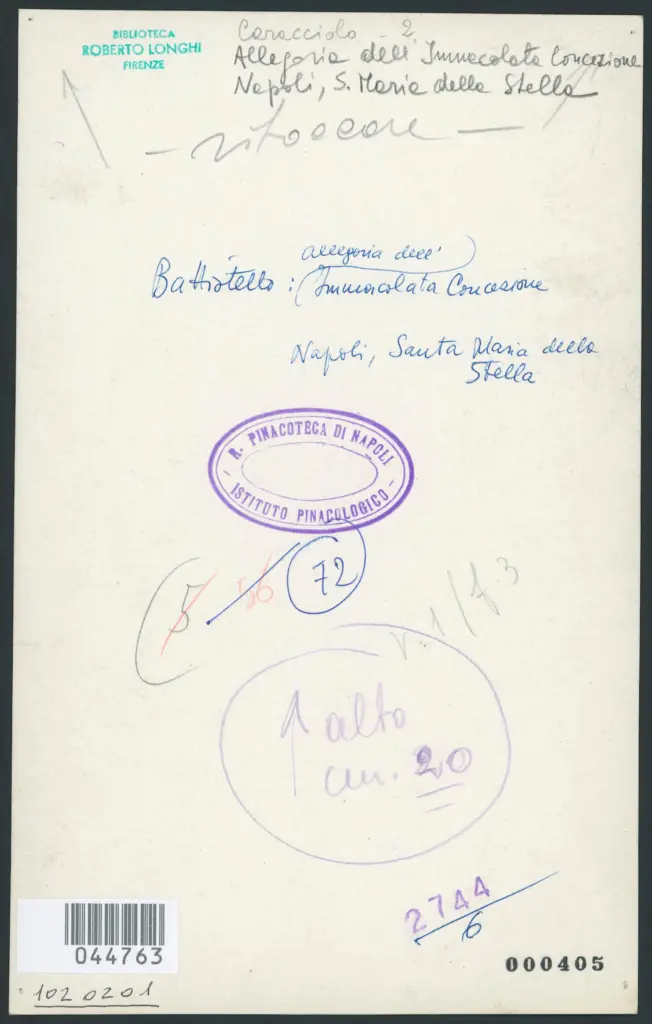 BIBLIOTECA
ROBERTO LONGHI
FIRENZE
Caracciolo - 2
Allegoria dell' Immacolata Concezione
Napoli, S. Maria della Stella
- ritoccare -
allegoria dell'
Battistello : Immacolata Concezione
Napoli, Santa Maria della
Stella
R. PINACOTECA DI NAPOLI
- ISTITUTO PINACOLOGICO -
5 56 72
v. 1/f 3
↑ alto
cm. 20
2744
6
044763
000405
1020201